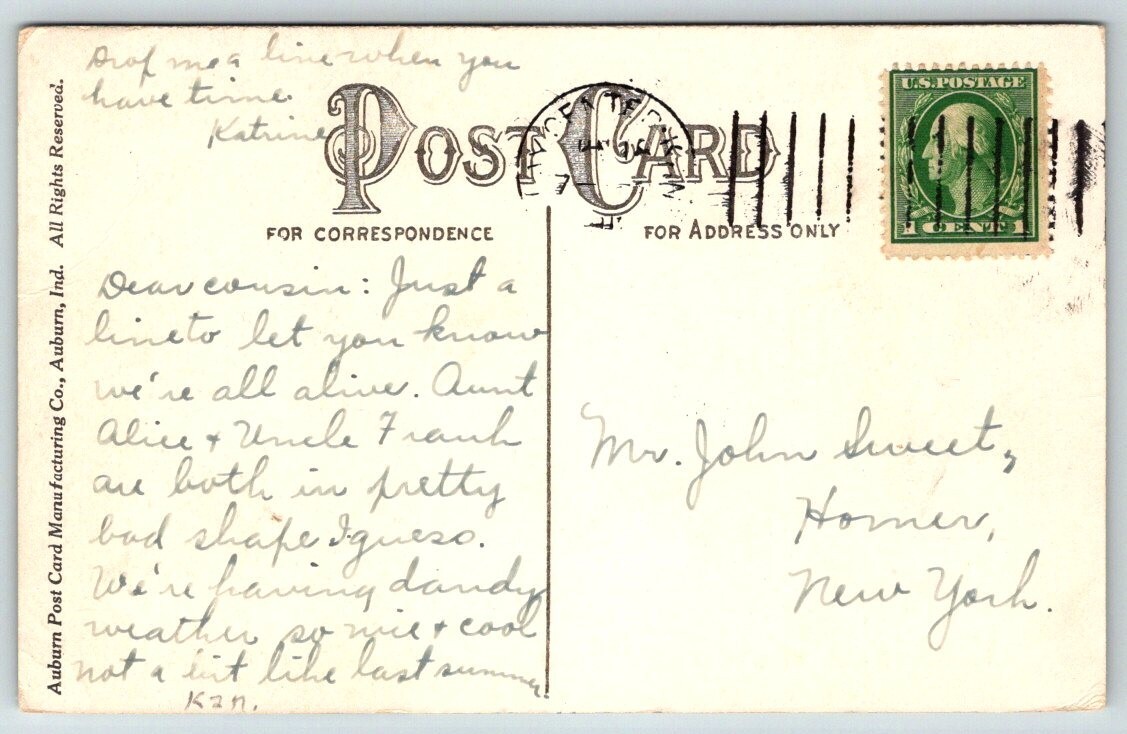 Drop me a line when you
have time.
Katrine
POST CARD
FOR CORRESPONDENCE
FOR ADDRESS ONLY
U.S. POSTAGE
1 CENT 1
Dear cousin: Just a
line to let you know
we're all alive. Aunt
Alice + Uncle Frank
are both in pretty
bad shape I guess.
We're having dandy
weather so nice + cool
not a bit like last summer.
Mr. John Sweet,
Homer,
New York.
Auburn Post Card Manufacturing Co., Auburn, Ind. All Rights Reserved.